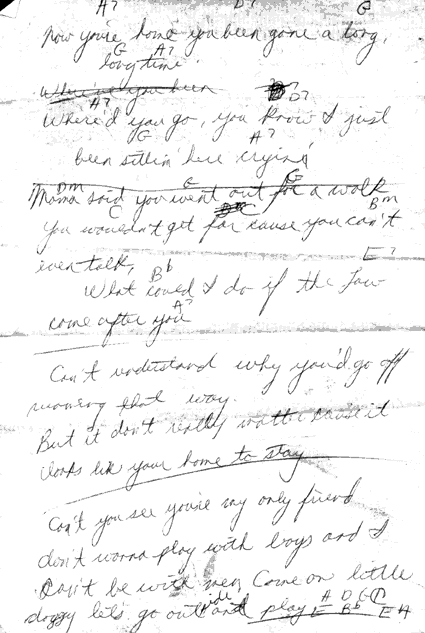 A7 D7 G
Now you're home you been gone a long,
G A7
long time
Where've you been
A7 D7
Where'd you go, you know I just
G A7
been sittin' here cryin'
Dm C G
Mama said you went out for a walk
C Bm
You wouldn't get far cause you can't
E7
even talk,
Bb
What could I do if the law
A7
come after you
Can't understand why you'd go off
running that way.
But it don't really matter cause it
looks like your home to stay
Can't you see you're my only friend
don't wanna play with boys and I
Can't be with men, Come on little
A D G
doggy let's go outside and play E Bb E A